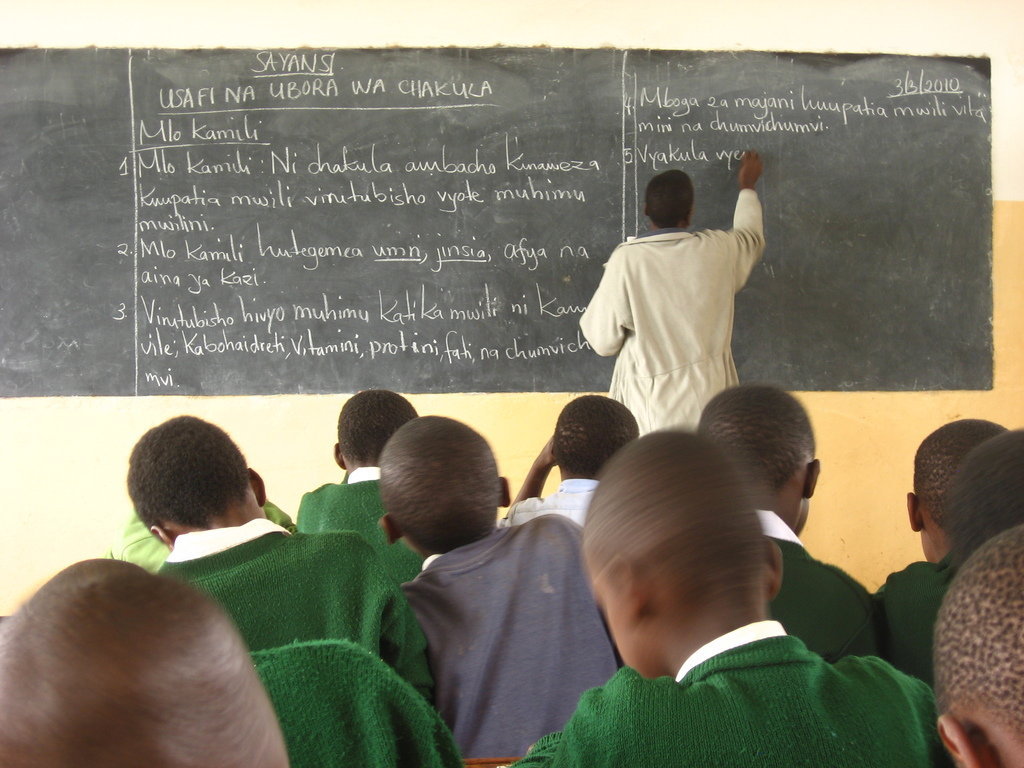 SAYANSI
USAFI NA UBORA WA CHAKULA
Mlo Kamili
1 Mlo Kamili: Ni chakula ambacho Kinaweza
Kuupatia mwili virutubisho vyote muhimu
mwilini.
2. Mlo Kamili hutegemea umri, jinsia, afya na
aina ya Kazi.
3. Virutubisho hivyo muhimu Katika mwili ni Kam
vile; Kabohaidreti, Vitamini, protini, fati, na chumvich
mvi.
3/3/2010
4. Mboga za majani huupatia mwili vita
mini na chumvichumvi.
5. Vyakula vye